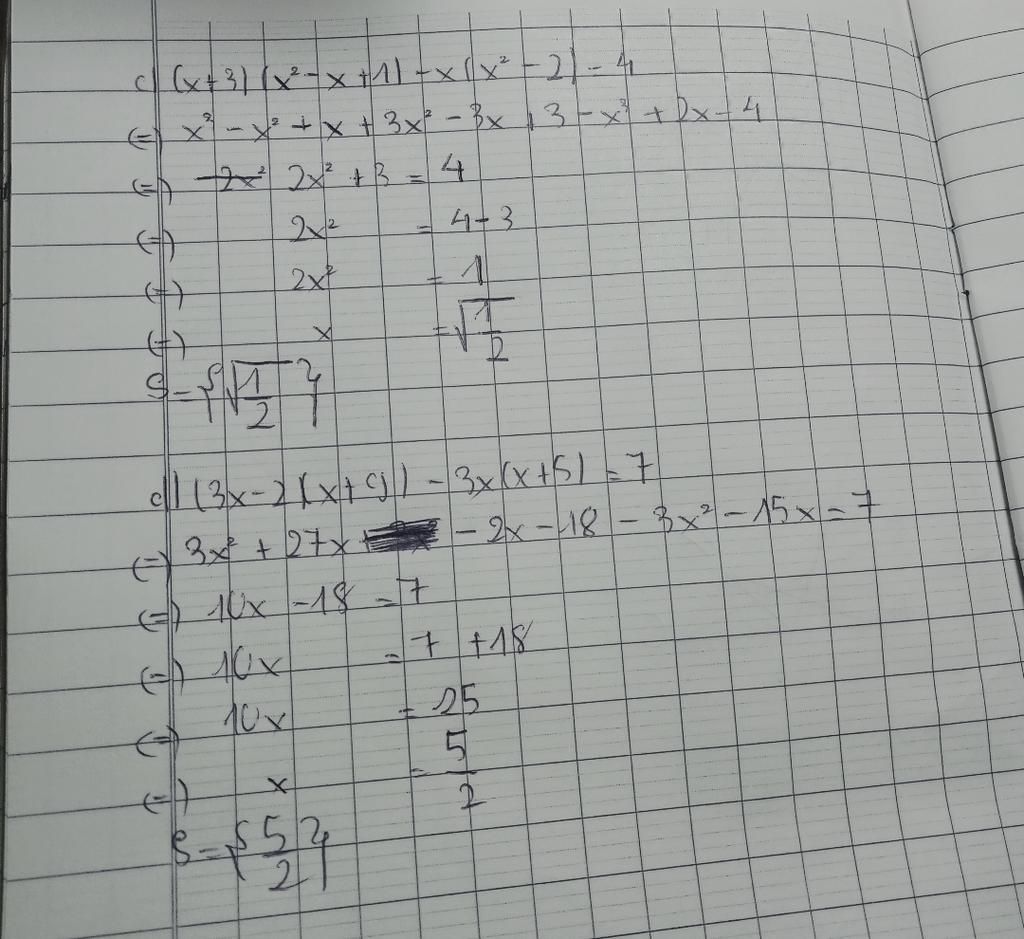 c) (x+3) (x² - x + 1) - x(x² - 2) = 4
(=) x³ - x² + x + 3x² - 3x + 3 - x³ + 2x = 4
(=) 2x² + 3 = 4
(=) 2x² = 4-3
(=) 2x² = 1
(=) x = √(1/2)
S = {√(1/2)}
d) (3x-2)(x+9) - 3x(x+5) = 7
(=) 3x² + 27x - 2x - 18 - 3x² - 15x = 7
(=) 10x - 18 = 7
(=) 10x = 7 + 18
(=) 10x = 25
(=) x = 5/2
S = {5/2}